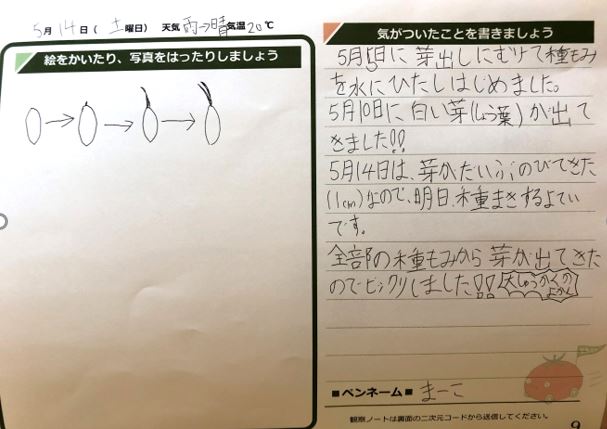 5月14日(土曜日) 天気 雨→晴 気温20℃
絵をかいたり、写真をはったりしましょう
気がついたことを書きましょう
5月5日に芽出しにむけて種もみ
を水にひたしはじめました。
5月10日に白い芽(しょう葉)が出て
きました!!
5月14日は、芽がだいぶのびてきた
(1cm)なので、明日、種まきするよてい
です。
全部の種もみから芽が出てきた
のでビックリしました!! 大しゅうかくの
よかん
■ペンネーム■ まーこ
観察ノートは裏面の二次元コードから送信してください。
9